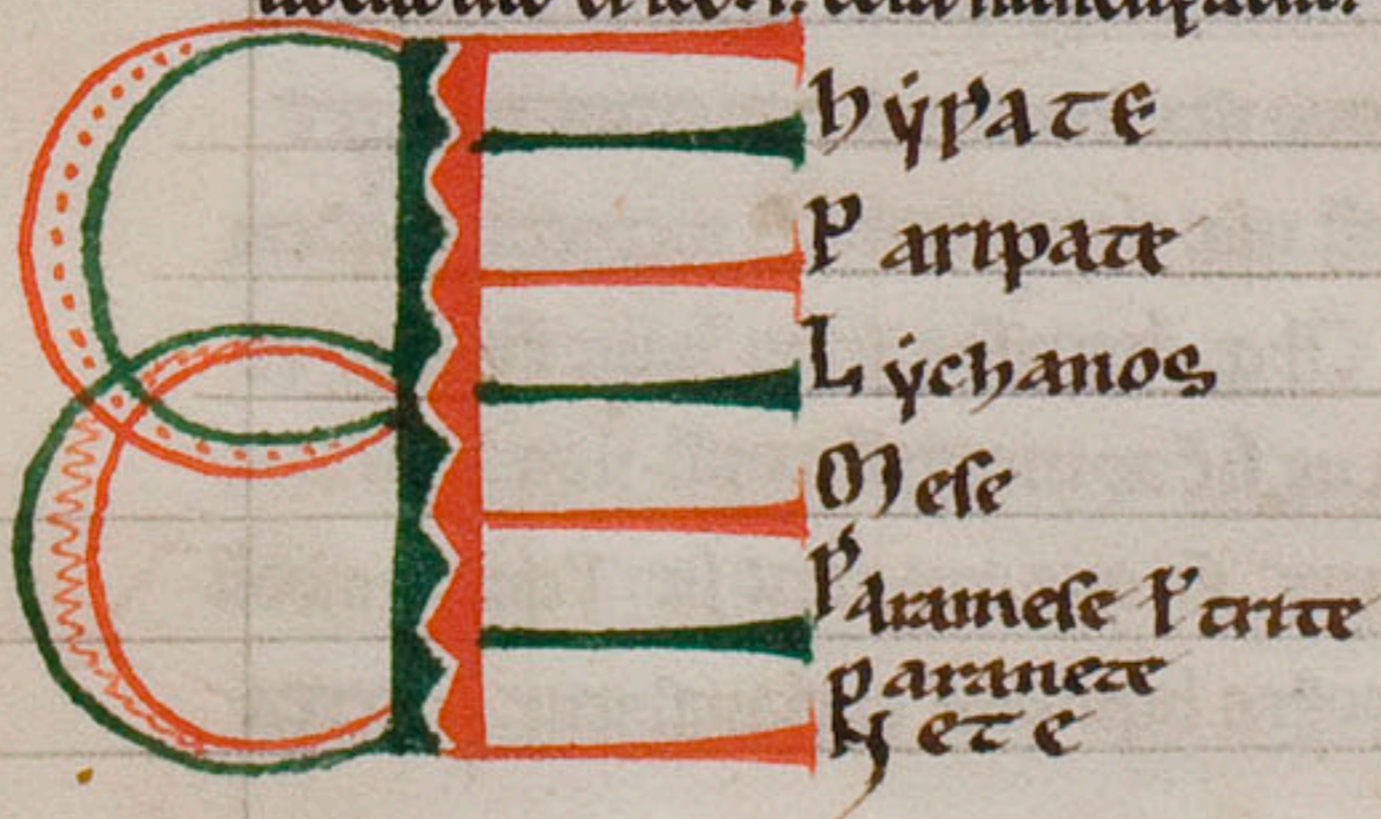 hẏpate
Paripate
Lẏchanos
Mese
Paramese ł trite
Paranete
Nete